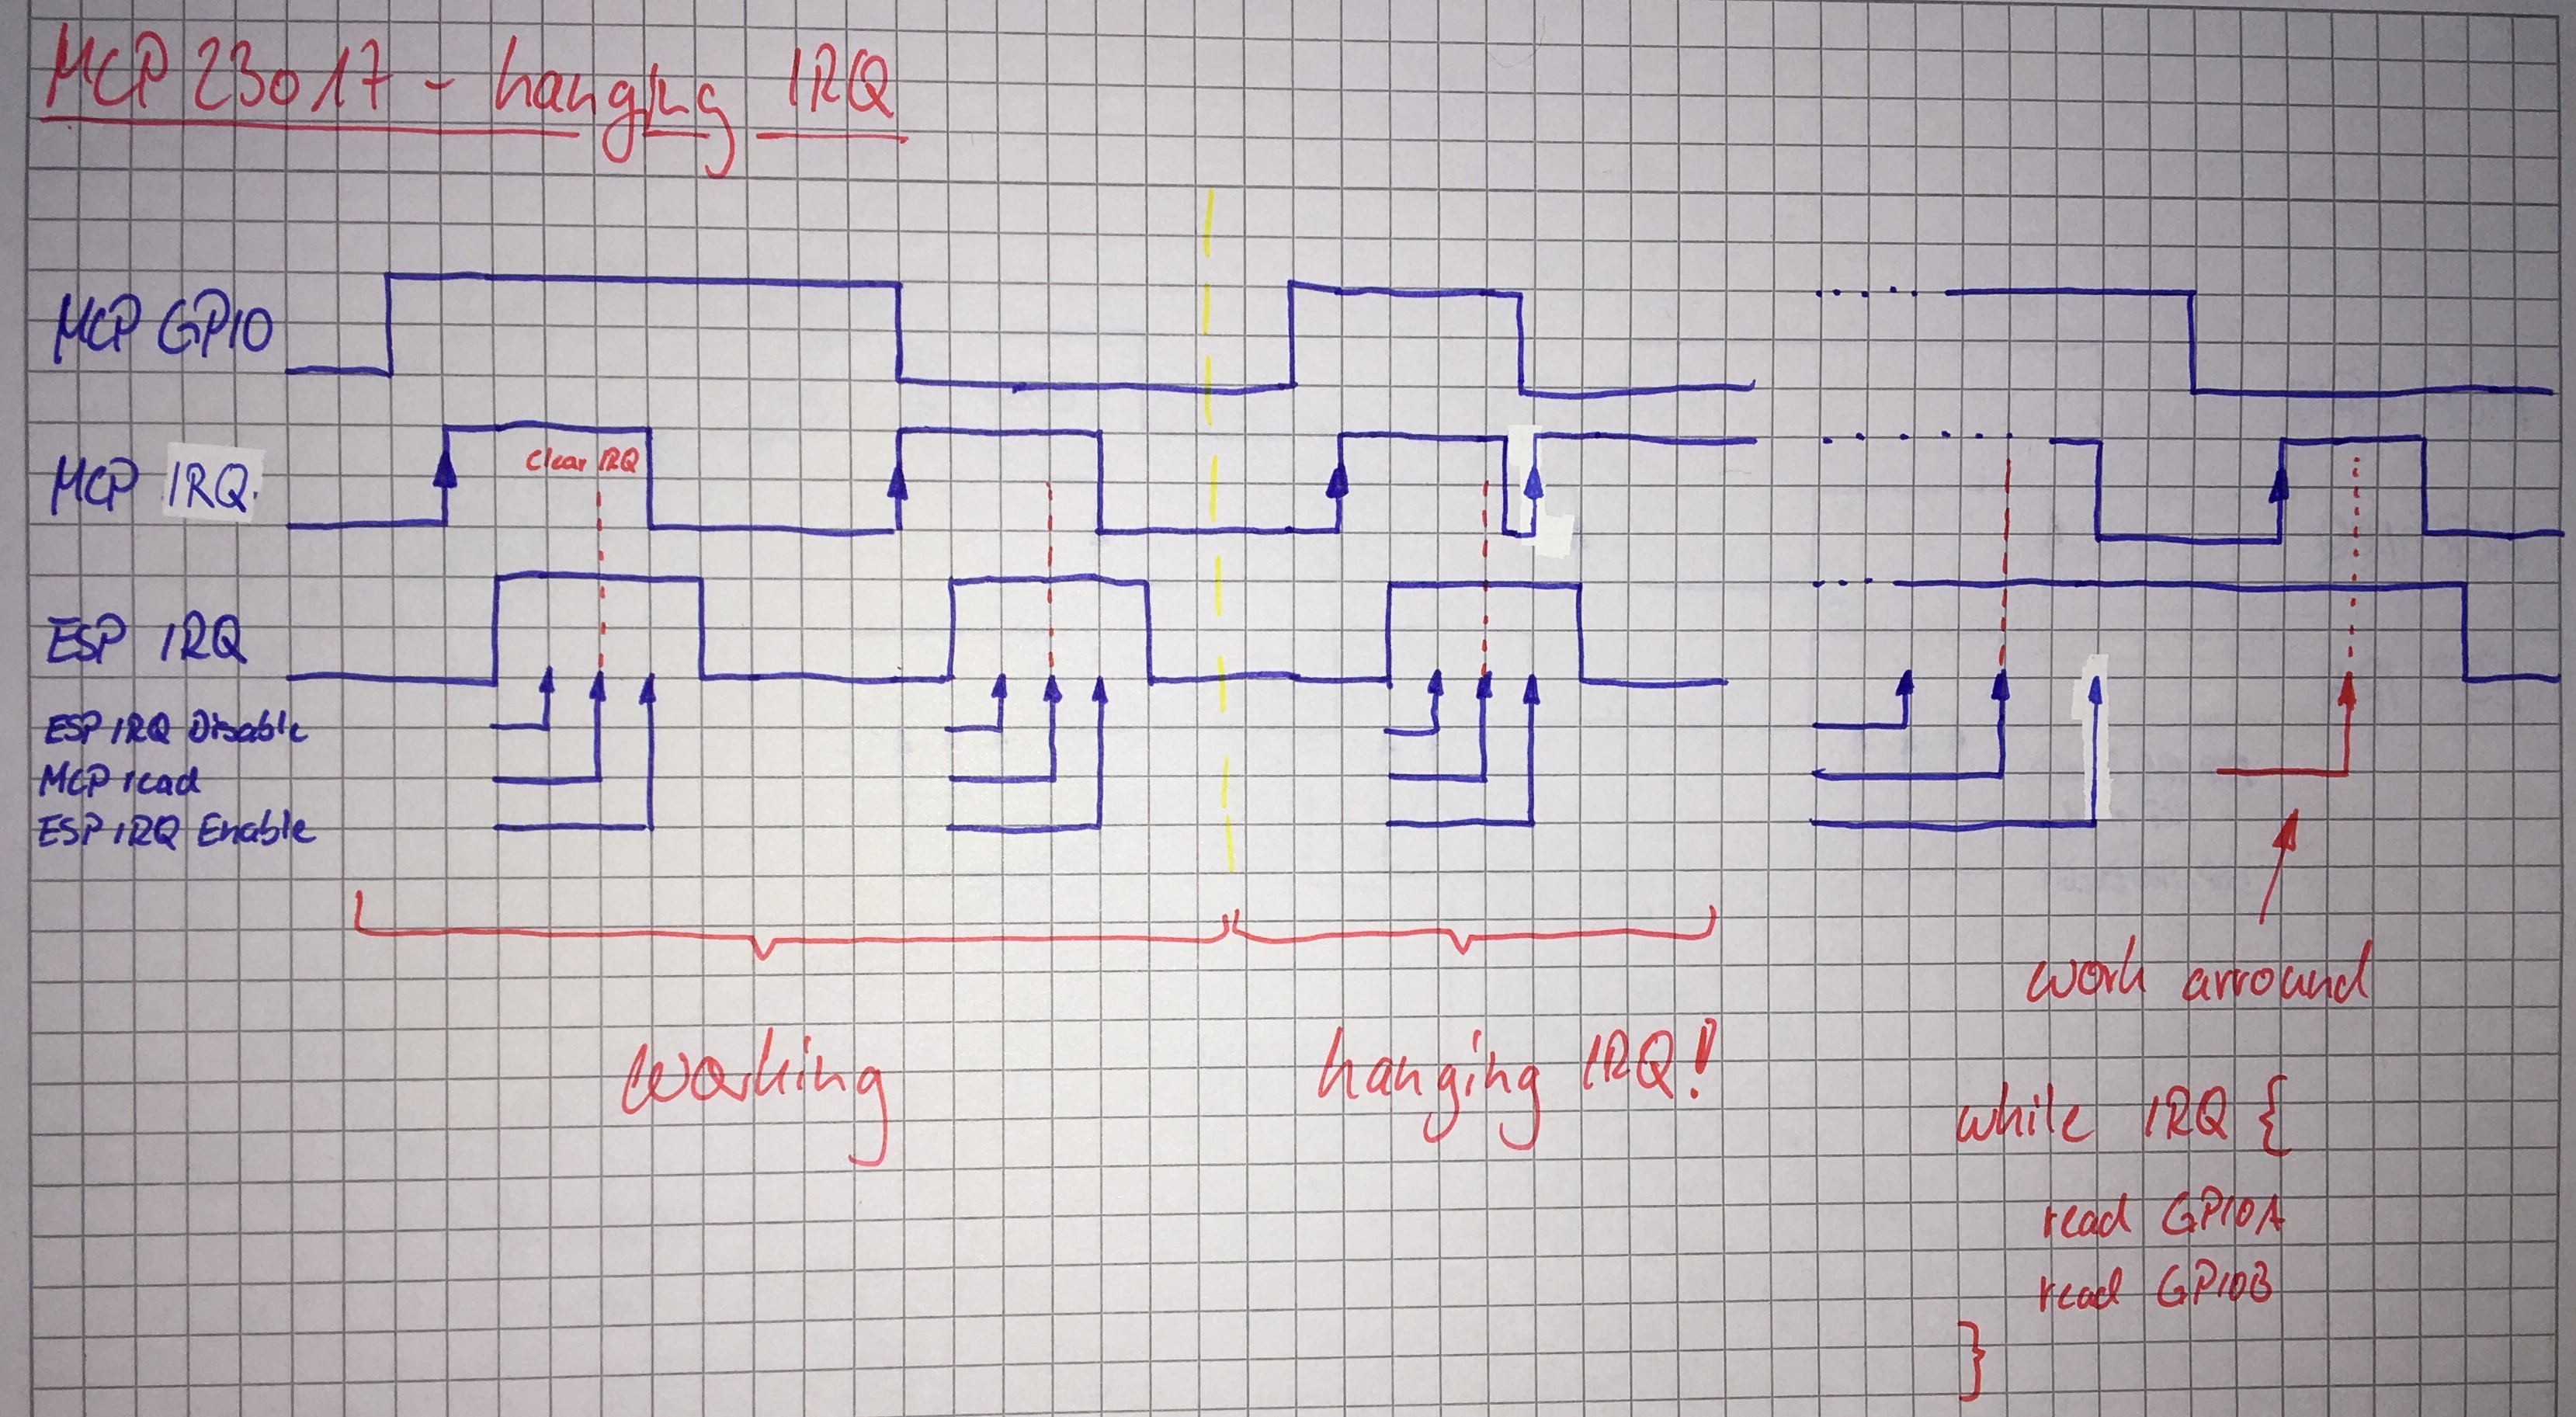 MCP 23017 - hanging IRQ
MCP GPIO
MCP IRQ.
Clear IRQ
ESP IRQ
ESP IRQ Disable
MCP read
ESP IRQ Enable
work arround
working
hanging IRQ!
while IRQ {
read GPIOA
read GPIOB
}